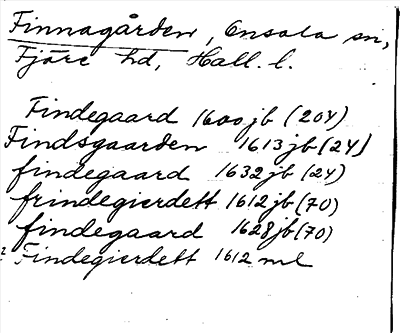 Finnagården, Onsala sn,
Fjäre hd, Hall. l.
Findegaard 1600 jb (204)
Findsgaarden 1613 jb (24)
findegaard 1632 jb (24)
frindegierdett 1612 jb (70)
findegaard 1628 jb (70)
? Findegierdett 1612 ml